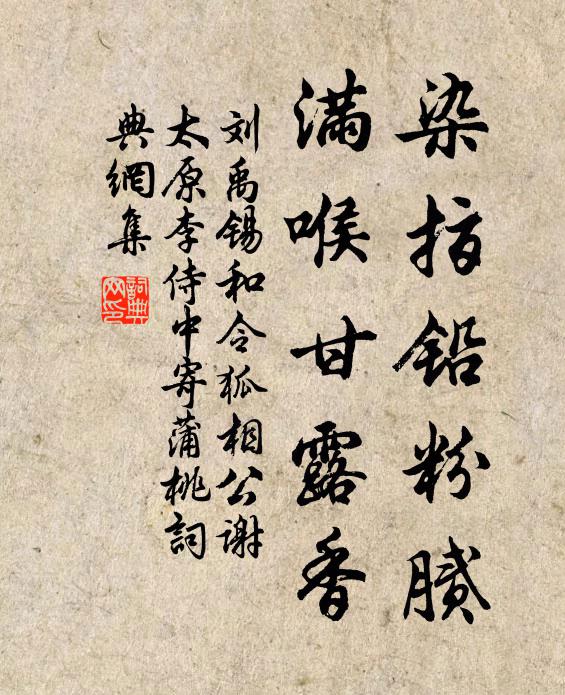 染指铅粉腻
满喉甘露香
刘禹锡和令狐相公谢
太原李侍中寄蒲桃詞
典網集
詞典网印